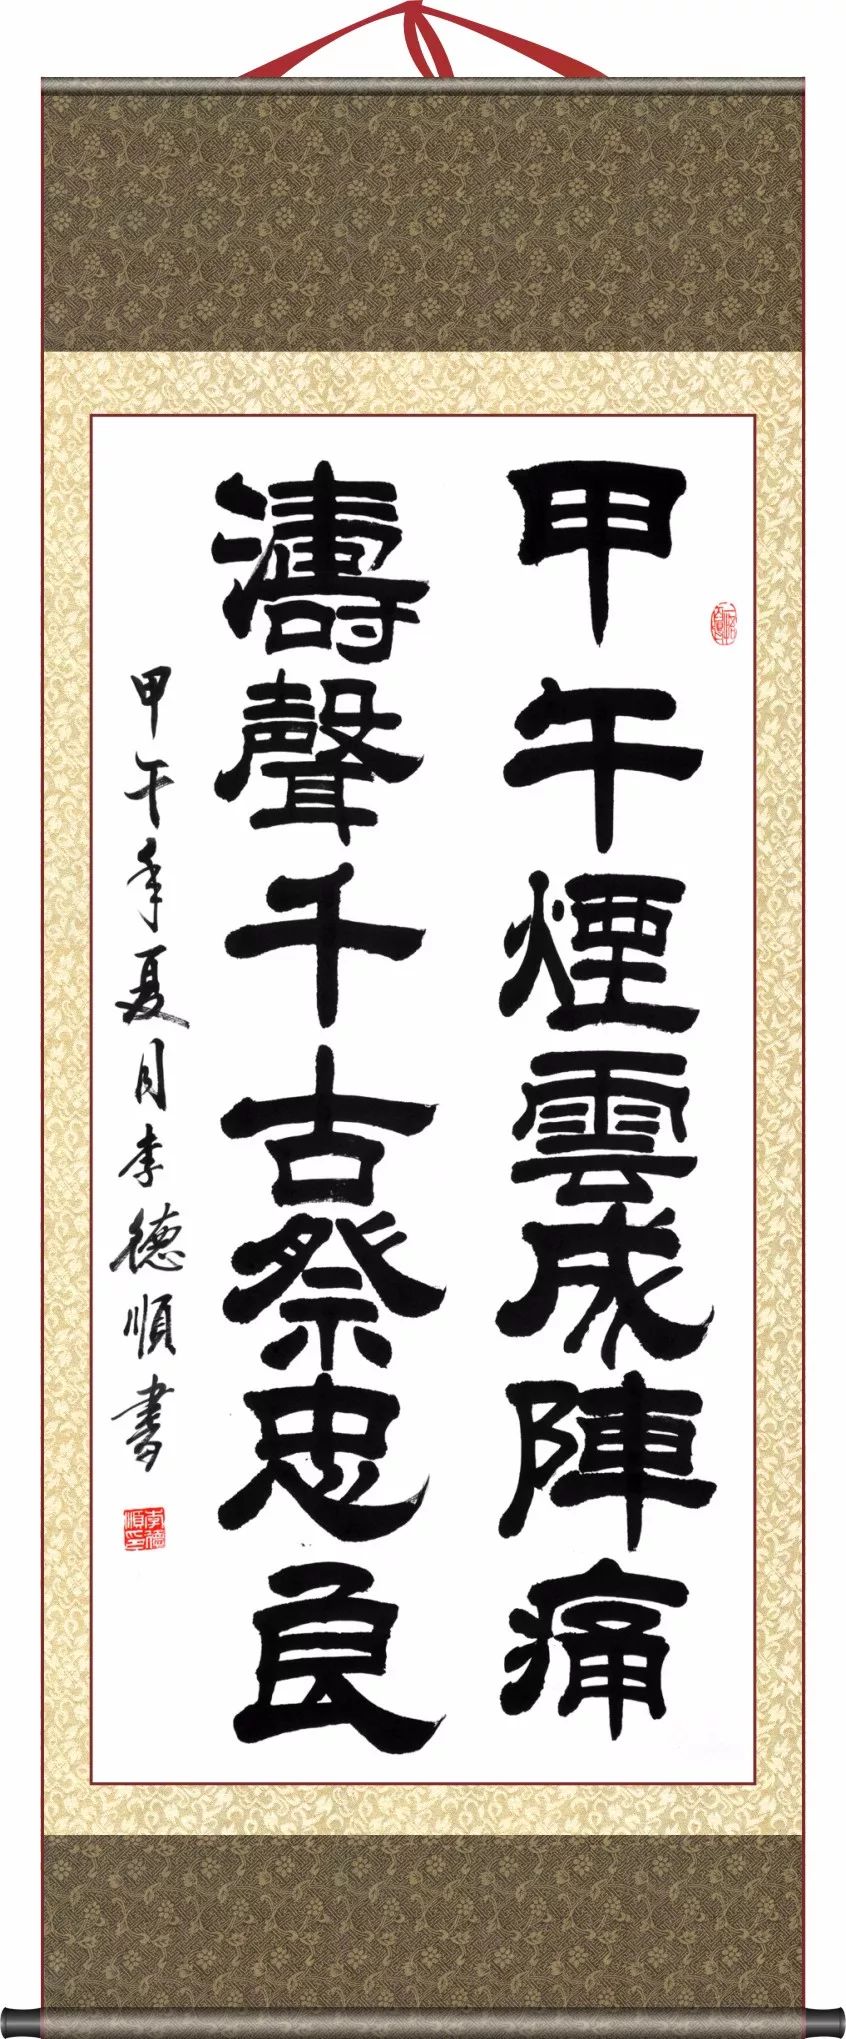 甲午煙雲成陣痛
濤聲千古祭忠良
甲午年夏月李德順書
李德順印